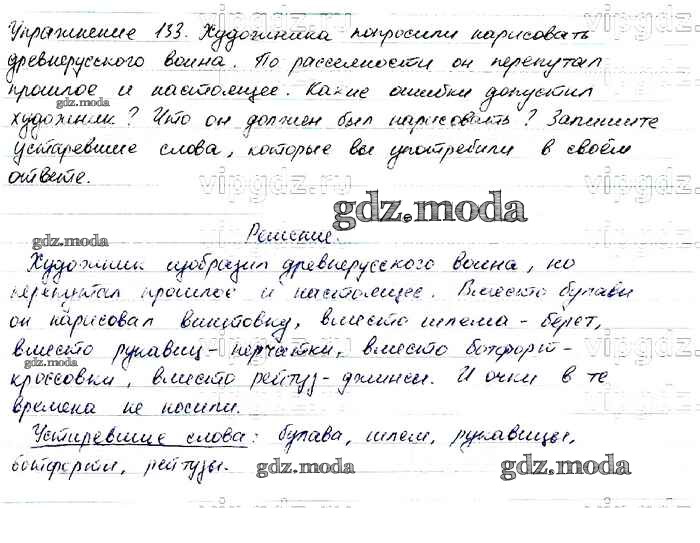 Упражнение 133. Художника попросили нарисовать
древнерусского воина. По рассеянности он перепутал
прошлое и настоящее. Какие ошибки допустил
gdz.moda
художник? Что он должен был нарисовать? Запишите
устаревшие слова, которые вы употребили в своём
ответе.
vipgdz.ru
gdz.moda
Решение.
gdz.moda
Художник изобразил древнерусского воина, но
перепутал прошлое и настоящее. Вместо булавы
он нарисовал винтовку, вместо шлема - берет,
вместо рукавиц - перчатки, вместо ботфорт -
gdz.moda
кроссовки, вместо рейтуз - джинсы. И очки в те
времена не носили.
Устаревшие слова: булава, шлем, рукавицы,
ботфорты, рейтузы.
gdz.moda
gdz.moda
gdz.moda